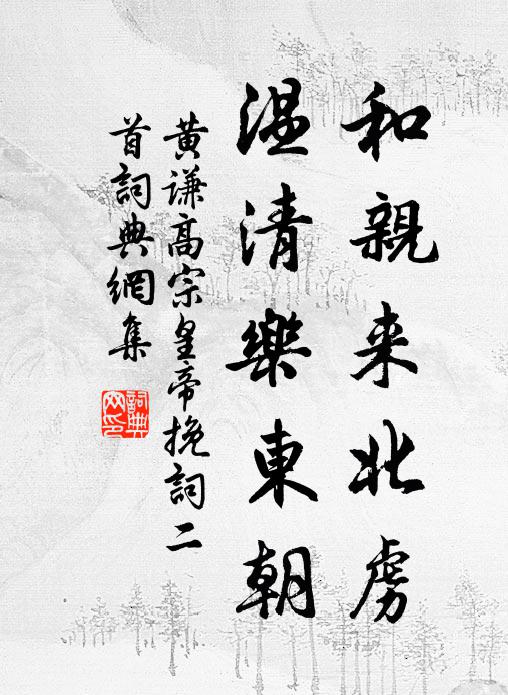 和親来北虜
温清樂東朝
黄谦高宗皇帝挽詞二
首詞典網集
詞典
网印